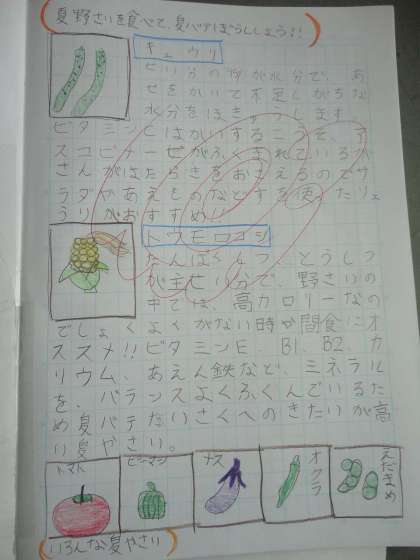 夏野さいを食べて、夏バテぼうししよう!!
キュウリ
分の  が水分で、あ
せをかいて不足しがちな
水分をほきゅうします。
ビタミンCはかいするこうそ、ア
スコビナーゼがふくまれているが
さんがはたらきをおさえるのでサ
ラダやあえものなどすを使ったりょ
うりがおすすめ!!
トウモロコシ
たんぱくしつ、とうしつ
が主せい分で、野さいの
中では、高カロリーなの
でしょくよくがない時や間食にオ
ススメ!!ビタミンE、B1、B2、カ
リウム、あえん鉄など、ミネラル
を、バランスよくふくんでいるた
め夏バテたいさくへのきたいが高
い夏やさい。
トマト
ピーマン
ナス
オクラ
えだまめ
いろんな夏やさい